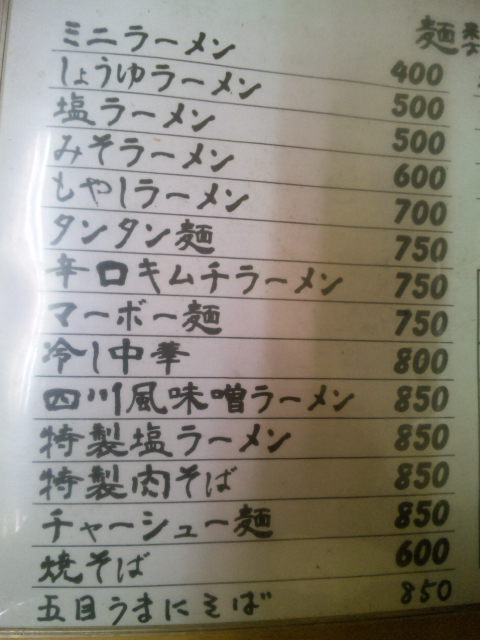 麺
ミニラーメン 400
しょうゆラーメン 500
塩ラーメン 500
みそラーメン 600
もやしラーメン 700
タンタン麺 750
辛口キムチラーメン 750
マーボー麺 750
冷し中華 800
四川風味噌ラーメン 850
特製塩ラーメン 850
特製肉そば 850
チャーシュー麺 850
焼そば 600
五目うまにそば 850